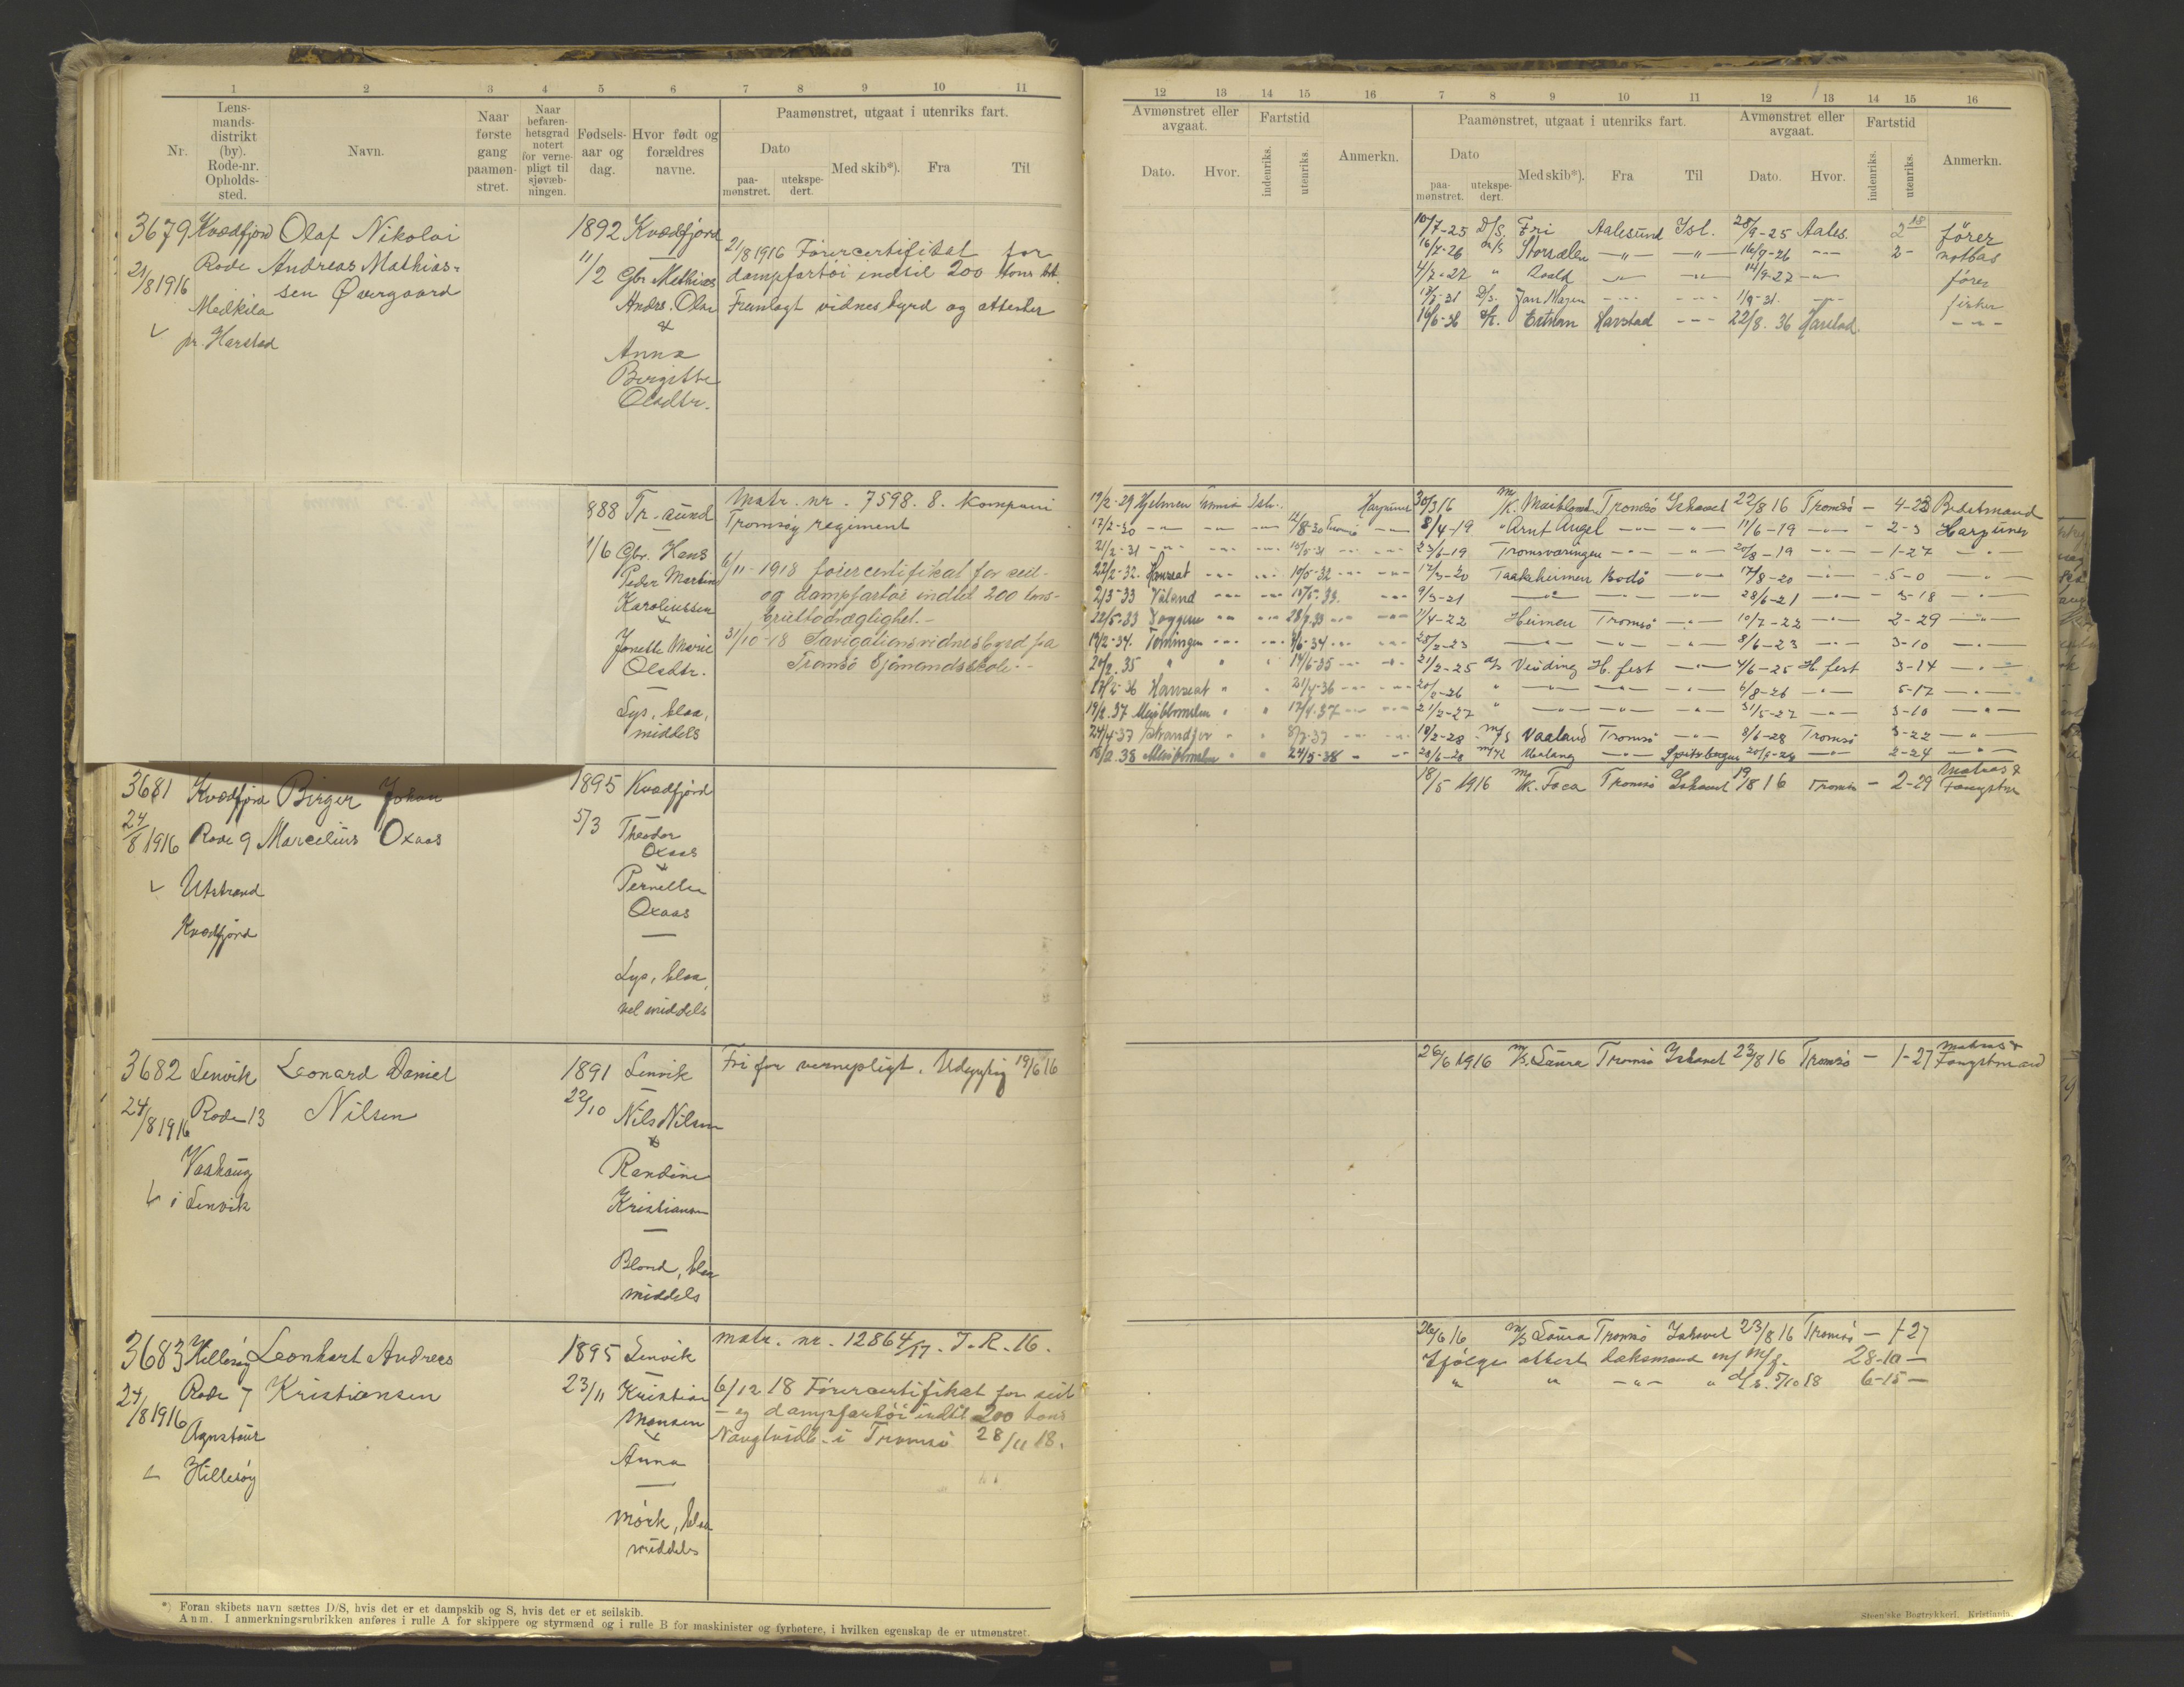 1 2 3 4 5 6 7 8 9 10 11
Nr.
Lens-
mands-
distrikt
(by).
Rode-nr.
Opholds-
sted.
Navn.
Naar
første
gang
paamøn-
stret.
Naar
befaren-
hetsgrad
notert
for verne-
pligt til
sjøvæb-
ningen.
Fødsels-
aar og
dag.
Hvor født og
forældres
navne.
Paamønstret, utgaat i utenriks fart.
Dato
paa-
mønstret.
utekspe-
dert.
Med skib*).
Fra
Til
3679 Kvædfjord Olaf Nikolai 1892 Kvædfjord
21/8 1916 Rode Andreas Mathias- 11/2 Gbr. Mathias
Medkila sen Øvergaard Andr. Olsen
pr. Harstad &
Anna
Birgitte
Olsdtr.
21/8 1916 Førercertifikat for
dampfartøi indtil 200 tons br.
Fremlagt vidnesbyrd og attester
888 Tr-sund
1/6 Gbr. Hans
Peder Martin
Karoliussen
&
Jonette Marie
Olsdtr.
Lys, blaa,
middels
Matr. nr. 7598. 8. Kompani
Tromsøy regiment
/11-1918 førercertifikat for seil-
og dampfartøi indtil 200 tons
bruttodrægtighet.-
31/10-18 Navigationsvidnesbyrd fra
Tromsö Sjömandsskole.-
3681 Kvædfjord Birger Johan 1895 Kvædfjord
24/8 1916 Rode 9 Marcelius Oxaas 5/3 Theodor
Oxaas
&
Utstrand Pernella
Oxaas
Kvædfjord
Lys, blaa,
vel middels
3682 Lenvik Leonard Daniel 1891 Lenvik Fri for vernepligt. Udygtig 19/6 16
24/8 1916 Rode 13 Nilsen 22/10 Nils Nilsen
&
Vaahaug Randine
i Lenvik Kristiansen
Blond, blaa
middels
3683 Hillesøy Leonhart Andreas 1895 Lenvik matr. nr. 12864/17. I.R. 16.
24/8 1916 Rode 7 Kristiansen 23/11 Kristian 6/12 18 Førercertifikat for seil
Monsen - og dampfartöi indtil 200 tons
& Navgtvidb. i Tromsö 28/11 18.
Hillesøy Anna
Mørk, blaa
middels
*) Foran skibets navn sættes D/S, hvis det er et dampskib og S, hvis det er et seilskib.
Anm. I anmerkningsrubrikken anføres i rulle A for skippere og styrmænd og i rulle B for maskinister og fyrbøtere, i hvilken egenskap de er utmønstret.
12 13 14 15 16 7 8 9 10 11 12 13 14 15 16
Avmønstret eller
avgaat.
Dato. Hvor.
Fartstid
indenriks.
utenriks.
Anmerkn.
Paamønstret, utgaat i utenriks fart.
Dato
paa-
mønstret.
utekspe-
dert.
Med skib*).
Fra
Til
Avmønstret eller
avgaat.
Dato. Hvor.
Fartstid
indenriks.
utenriks.
Anmerkn.
10/7-25 D/S. Fri Aalesund Isl. 28/9-25 Aales. 2 18 fører
16/7-26 M/S Storsælen -"- -"- 16/9-26 -"- 2- notbas
4/7-27 " -"- -"- 14/9-27 -"- fører
D/S. Jan Mayen -"- -"- 11/9-31 -"- fisker
16/6-36 Harstad -"- 22/8. 36 Harstad -"-
19/2-29 Hjelmen Harpuner
17/2-30 -"- -"- -"-
21/2-31 -"- -"- -"-
22/2-32. Hanseat -"- -"- 10/5-32 -"- -"-
2/3-33 Våland -"- -"-
-"- -"-
-34. -"- -"-
20/2.35 " " " 14/6-35 -"- -"-
17/2-36 Hanseat " " 21/4-36 -"- -"-
19/2.37 Maiblomsten " "
24/4-37 " "
18/2.38 Maiblomsten " " 24/5-38
30/3 16 M/K. Maiblomst Tromsö Ishavet 22/8 16 Tromsö - 4-23 Bedstmand
8/4-19 " Arnt Angel -"- -"- 11/6-19 -"- - 2-3 Harpuner
23/6-19 Tromsværingen -"- -"- 20/8-19 -"- - 1-27 -"-
17/3-20 Taakeheimen Bodö -"- 17/8-20 -"- 5-0 -"-
9/3-21 -"- -"- -"- 28/6-21 -"- 3-18 -"-
11/4-22 Heimen Tromsö -"- 10/7-22 -"- 2-29 -"-
28/2-23 -"- -"- -"- 8/6-23 -"- 3-10 -"-
21/2-25 Veiding H.fest -"- 4/6-25 H.fest 3-14 -"-
20/2-26 " -"- -"- -"- 6/8-26 -"- 5-17 -"-
21/2-27 " -"- -"- -"- 31/5-27 -"- 3-10 -"-
19/2-28 M/S Vaaland Tromsö -"- 8/6-28 Tromsö 3-22 -"-
M/K -"- Spitsbergen -"- 2-24 -"-
18/5 1916 M/K. Foca Tromsö Ishavet 19/8 16 Tromsö - 2-29 Matros & Fangstm
26/6 1916 M/S. Laura Tromsö Ishavet 23/8 16 Tromsö - 1-27 matros & Fangstmand
26/6 16 M/S Laura Tromsö Ishavet 23/8 16 Tromsö - 1-27
Ifølge attest dæksmand m/ M/f. 28-10 -
" " -"- " d/s. 5/10 18 6-15 -
Steen'ske Bogtrykkeri, Kristiania.